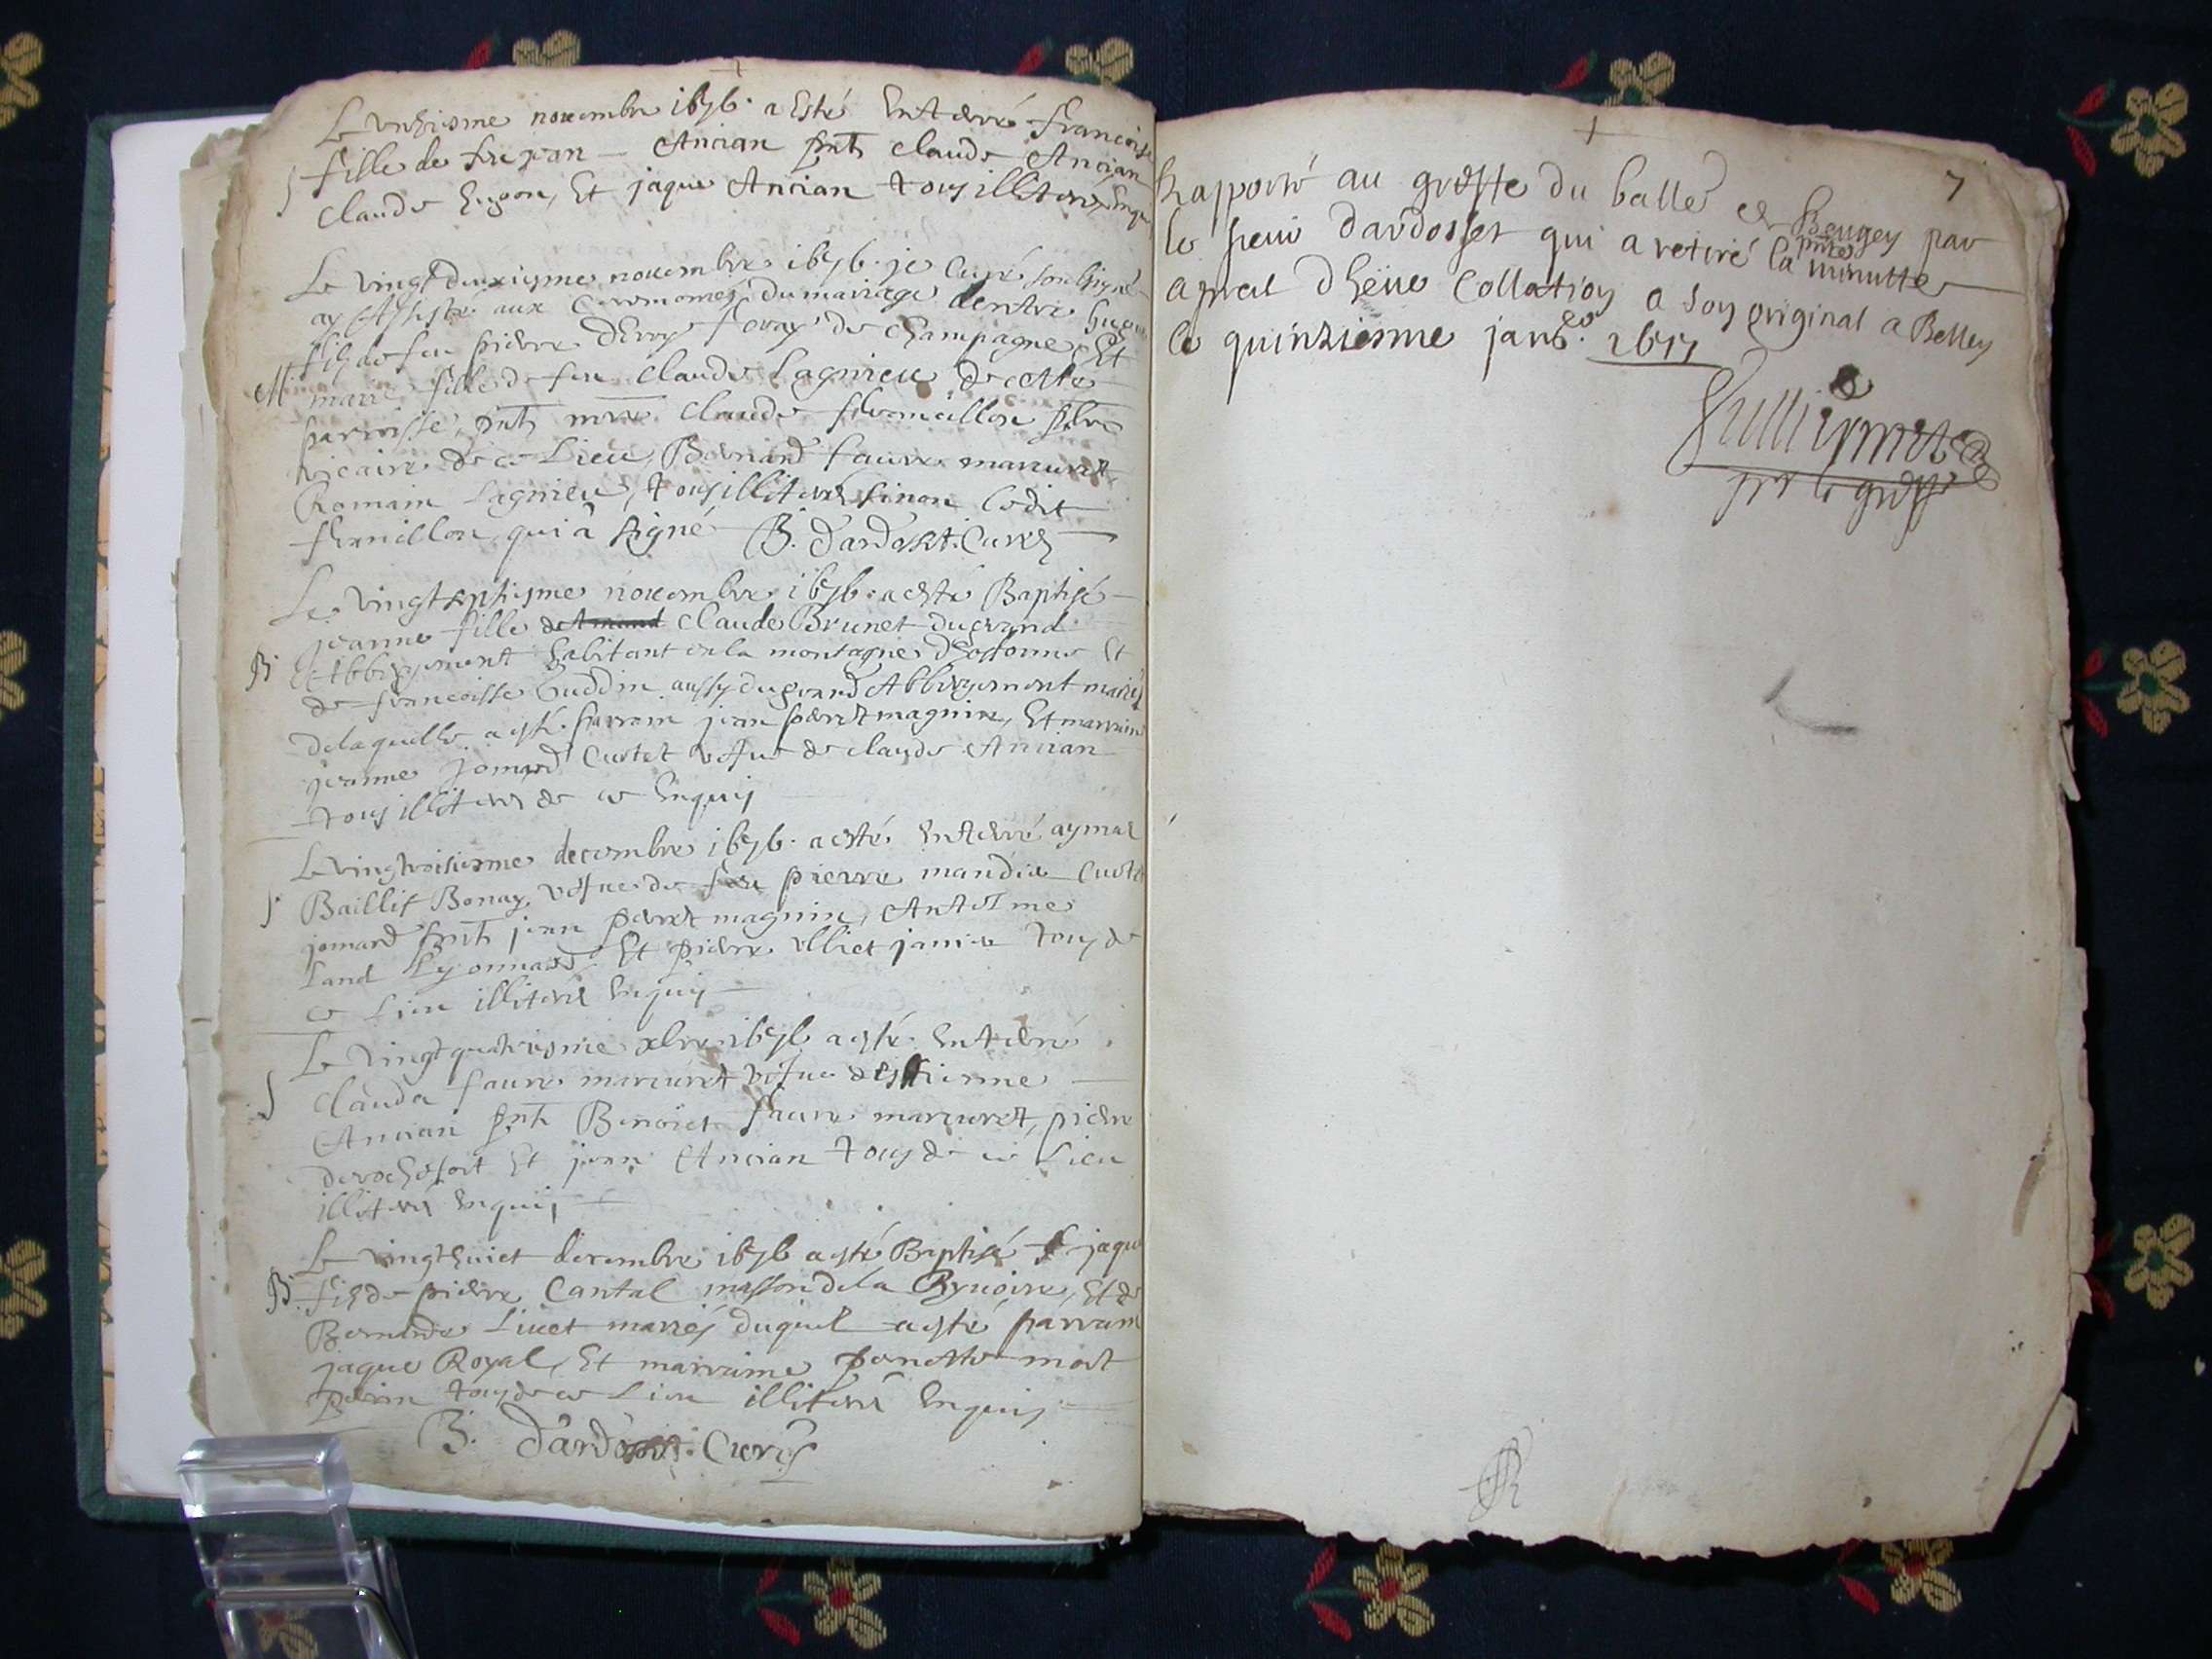 Le unziesme novembre 1676. a Esté Enterré francoise
fille de feu jean Ancian pnts claude Ancian
S claude hugon, Et jaque Ancian tous illiterés Enquis
Le vingtduxiesme novembre 1676. je Curé soubsigné
ay Assisté aux Ceremonies du mariage dentre hugue
filz de feu pierre Derry de champagne Et
M marie fille de feu claude Lagnieu de cette
parroisse, pnts mre claude pbre
vicaire de ce Lieu, Bernard faure marcuret
Romain Lagnieu, tous illiterés sinon Ledit
qui a signé B. Dardosset. Curé
Le vingtseptiesme novembre 1676. a esté Baptisé
jeanne fille claude Brunet du grand
B. Abbergement habitant en la montagne Et
de francoisse Guddin aussy du grand Abbergement mariés
delaquelle a esté parrain jean perret magnin, Et marraine
jeanne jomard Curtet vefue de claude Ancian
tous illiterés de ce Enquis
Le vingtroisiesme decembre 1676. a esté Enterré aymar
S. Baillif Bonay vefue de feu pierre mandia Curtet
jomard pnts jean perret magnin, Antoine
Land Lyonnard Et pierre janin tous de
ce Lieu illiterés Enquis
Le vingtquatriesme xbre 1676 a esté Enterré
S clauda faure marcuret vefue destienne
Ancian pnts Benoict faure marcuret, pierre
derochefort Et jean Ancian tous de ce Lieu
illiterés Enquis
Le vingthuict decembre 1676 a esté Baptisé jaque
B. filz de pierre Cantal masson dela Et de
Bernarde Livet mariés duquel a esté parrain
jaque Royal, Et marraine penette mort
perrin tous de ce Lieu illiterés Enquis
B. Dardosset. Curé
7
Rapporté au greffe du balle de Beugey par
le sieur Dardosset qui a retiré la pnte minutte
apres dheue Collation a son original a Belley
le quinziesme janv. 1677
Gulliermet
pr le greffe